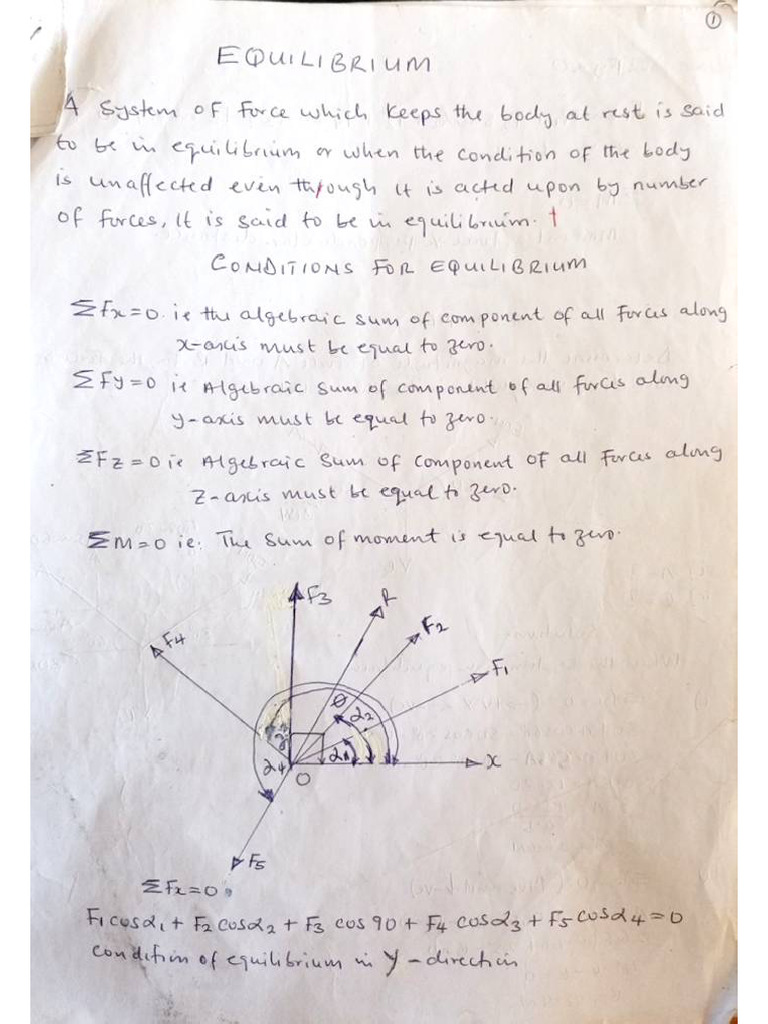 1
EQUILIBRIUM
A System of Force which Keeps the body at rest is said
to be in equilibrium or when the condition of the body
is unaffected even through it is acted upon by number
of forces, It is said to be in equilibrium.
CONDITIONS FOR EQUILIBRIUM
ΣFx=0. ie the algebraic sum of component of all Forces along
x-axis must be equal to zero.
ΣFy=0 ie Algebraic Sum of component of all forces along
y-axis must be equal to zero.
ΣFz=0 ie Algebraic Sum of component of all Forces along
Z-axis must be equal to zero.
ΣM=0 ie. The Sum of moment is equal to zero.
F3
R
F2
F4
F1
θ
α2
α3
α1
α4
O
x
F5
ΣFx=0
F1cosα1 + F2cosα2 + F3 cos 90 + F4 cosα3 + F5 cosα4 = 0
Condition of equilibrium in Y-direction